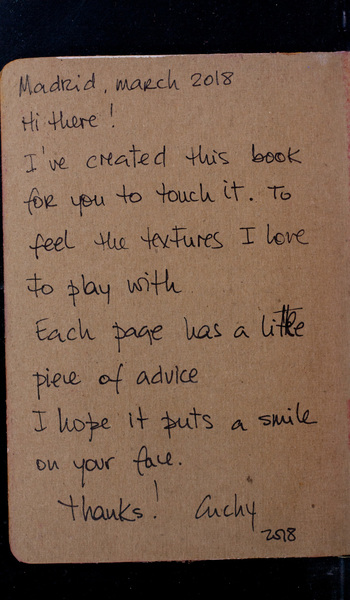 Madrid, march 2018
Hi there!
I've created this book
for you to touch it. To
feel the textures I love
to play with
Each page has a little
piece of advice
I hope it puts a smile
on your face.
Thanks! Cuchy
2018